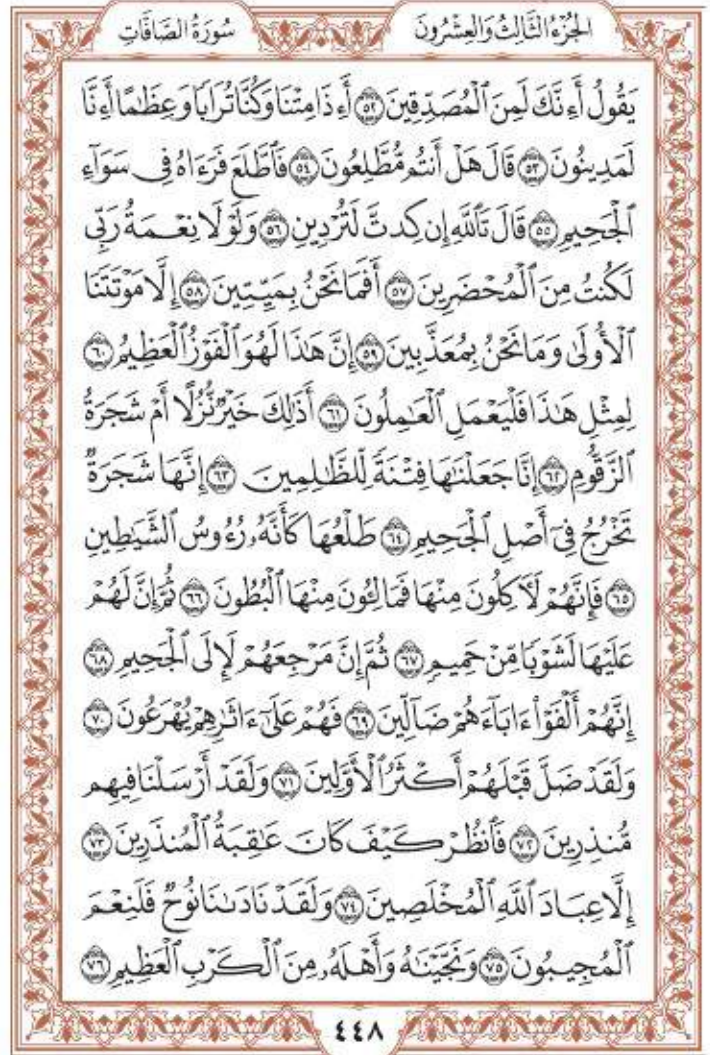 سُورَةُ الصَّافَّاتِ الجُزْءُ الثَّالِثُ وَالعِشْرُونَ
يَقُولُ أَءِنَّكَ لَمِنَ ٱلْمُصَدِّقِينَ ٥٢ أَءِذَا مِتْنَا وَكُنَّا تُرَابٗا وَعِظَٰمًا أَءِنَّا
لَمَدِينُونَ ٥٣ قَالَ هَلْ أَنتُم مُّطَّلِعُونَ ٥٤ فَٱطَّلَعَ فَرَءَاهُ فِى سَوَآءِ
ٱلْجَحِيمِ ٥٥ قَالَ تَٱللَّهِ إِن كِدتَّ لَتُرْدِينِ ٥٦ وَلَوْلَا نِعْمَةُ رَبِّى
لَكُنتُ مِنَ ٱلْمُحْضَرِينَ ٥٧ أَفَمَا نَحْنُ بِمَيِّتِينَ ٥٨ إِلَّا مَوْتَتَنَا
ٱلْأُولَىٰ وَمَا نَحْنُ بِمُعَذَّبِينَ ٥٩ إِنَّ هَٰذَا لَهُوَ ٱلْفَوْزُ ٱلْعَظِيمُ ٦٠
لِمِثْلِ هَٰذَا فَلْيَعْمَلِ ٱلْعَٰمِلُونَ ٦١ أَذَٰلِكَ خَيْرٌ نُّزُلًا أَمْ شَجَرَةُ
ٱلزَّقُّومِ ٦٢ إِنَّا جَعَلْنَٰهَا فِتْنَةً لِّلظَّٰلِمِينَ ٦٣ إِنَّهَا شَجَرَةٌ
تَخْرُجُ فِىٓ أَصْلِ ٱلْجَحِيمِ ٦٤ طَلْعُهَا كَأَنَّهُۥ رُءُوسُ ٱلشَّيَٰطِينِ
٦٥ فَإِنَّهُمْ لَءَاكِلُونَ مِنْهَا فَمَالِـُٔونَ مِنْهَا ٱلْبُطُونَ ٦٦ ثُمَّ إِنَّ لَهُمْ
عَلَيْهَا لَشَوْبًا مِّنْ حَمِيمٍ ٦٧ ثُمَّ إِنَّ مَرْجِعَهُمْ لَإِلَى ٱلْجَحِيمِ ٦٨
إِنَّهُمْ أَلْفَوْا۟ ءَابَآءَهُمْ ضَآلِّينَ ٦٩ فَهُمْ عَلَىٰٓ ءَاثَٰرِهِمْ يُهْرَعُونَ ٧٠
وَلَقَدْ ضَلَّ قَبْلَهُمْ أَكْثَرُ ٱلْأَوَّلِينَ ٧١ وَلَقَدْ أَرْسَلْنَا فِيهِم
مُّنذِرِينَ ٧٢ فَٱنظُرْ كَيْفَ كَانَ عَٰقِبَةُ ٱلْمُنذَرِينَ ٧٣
إِلَّا عِبَادَ ٱللَّهِ ٱلْمُخْلَصِينَ ٧٤ وَلَقَدْ نَادَىٰنَا نُوحٌ فَلَنِعْمَ
ٱلْمُجِيبُونَ ٧٥ وَنَجَّيْنَٰهُ وَأَهْلَهُۥ مِنَ ٱلْكَرْبِ ٱلْعَظِيمِ ٧٦
٤٤٨